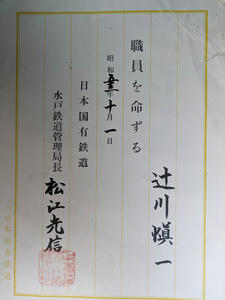 辻川愼一
職員を命ずる
昭和五三年十月一日
日本国有鉄道
水戸鉄道管理局長 松江光信
(日本国有鉄道)